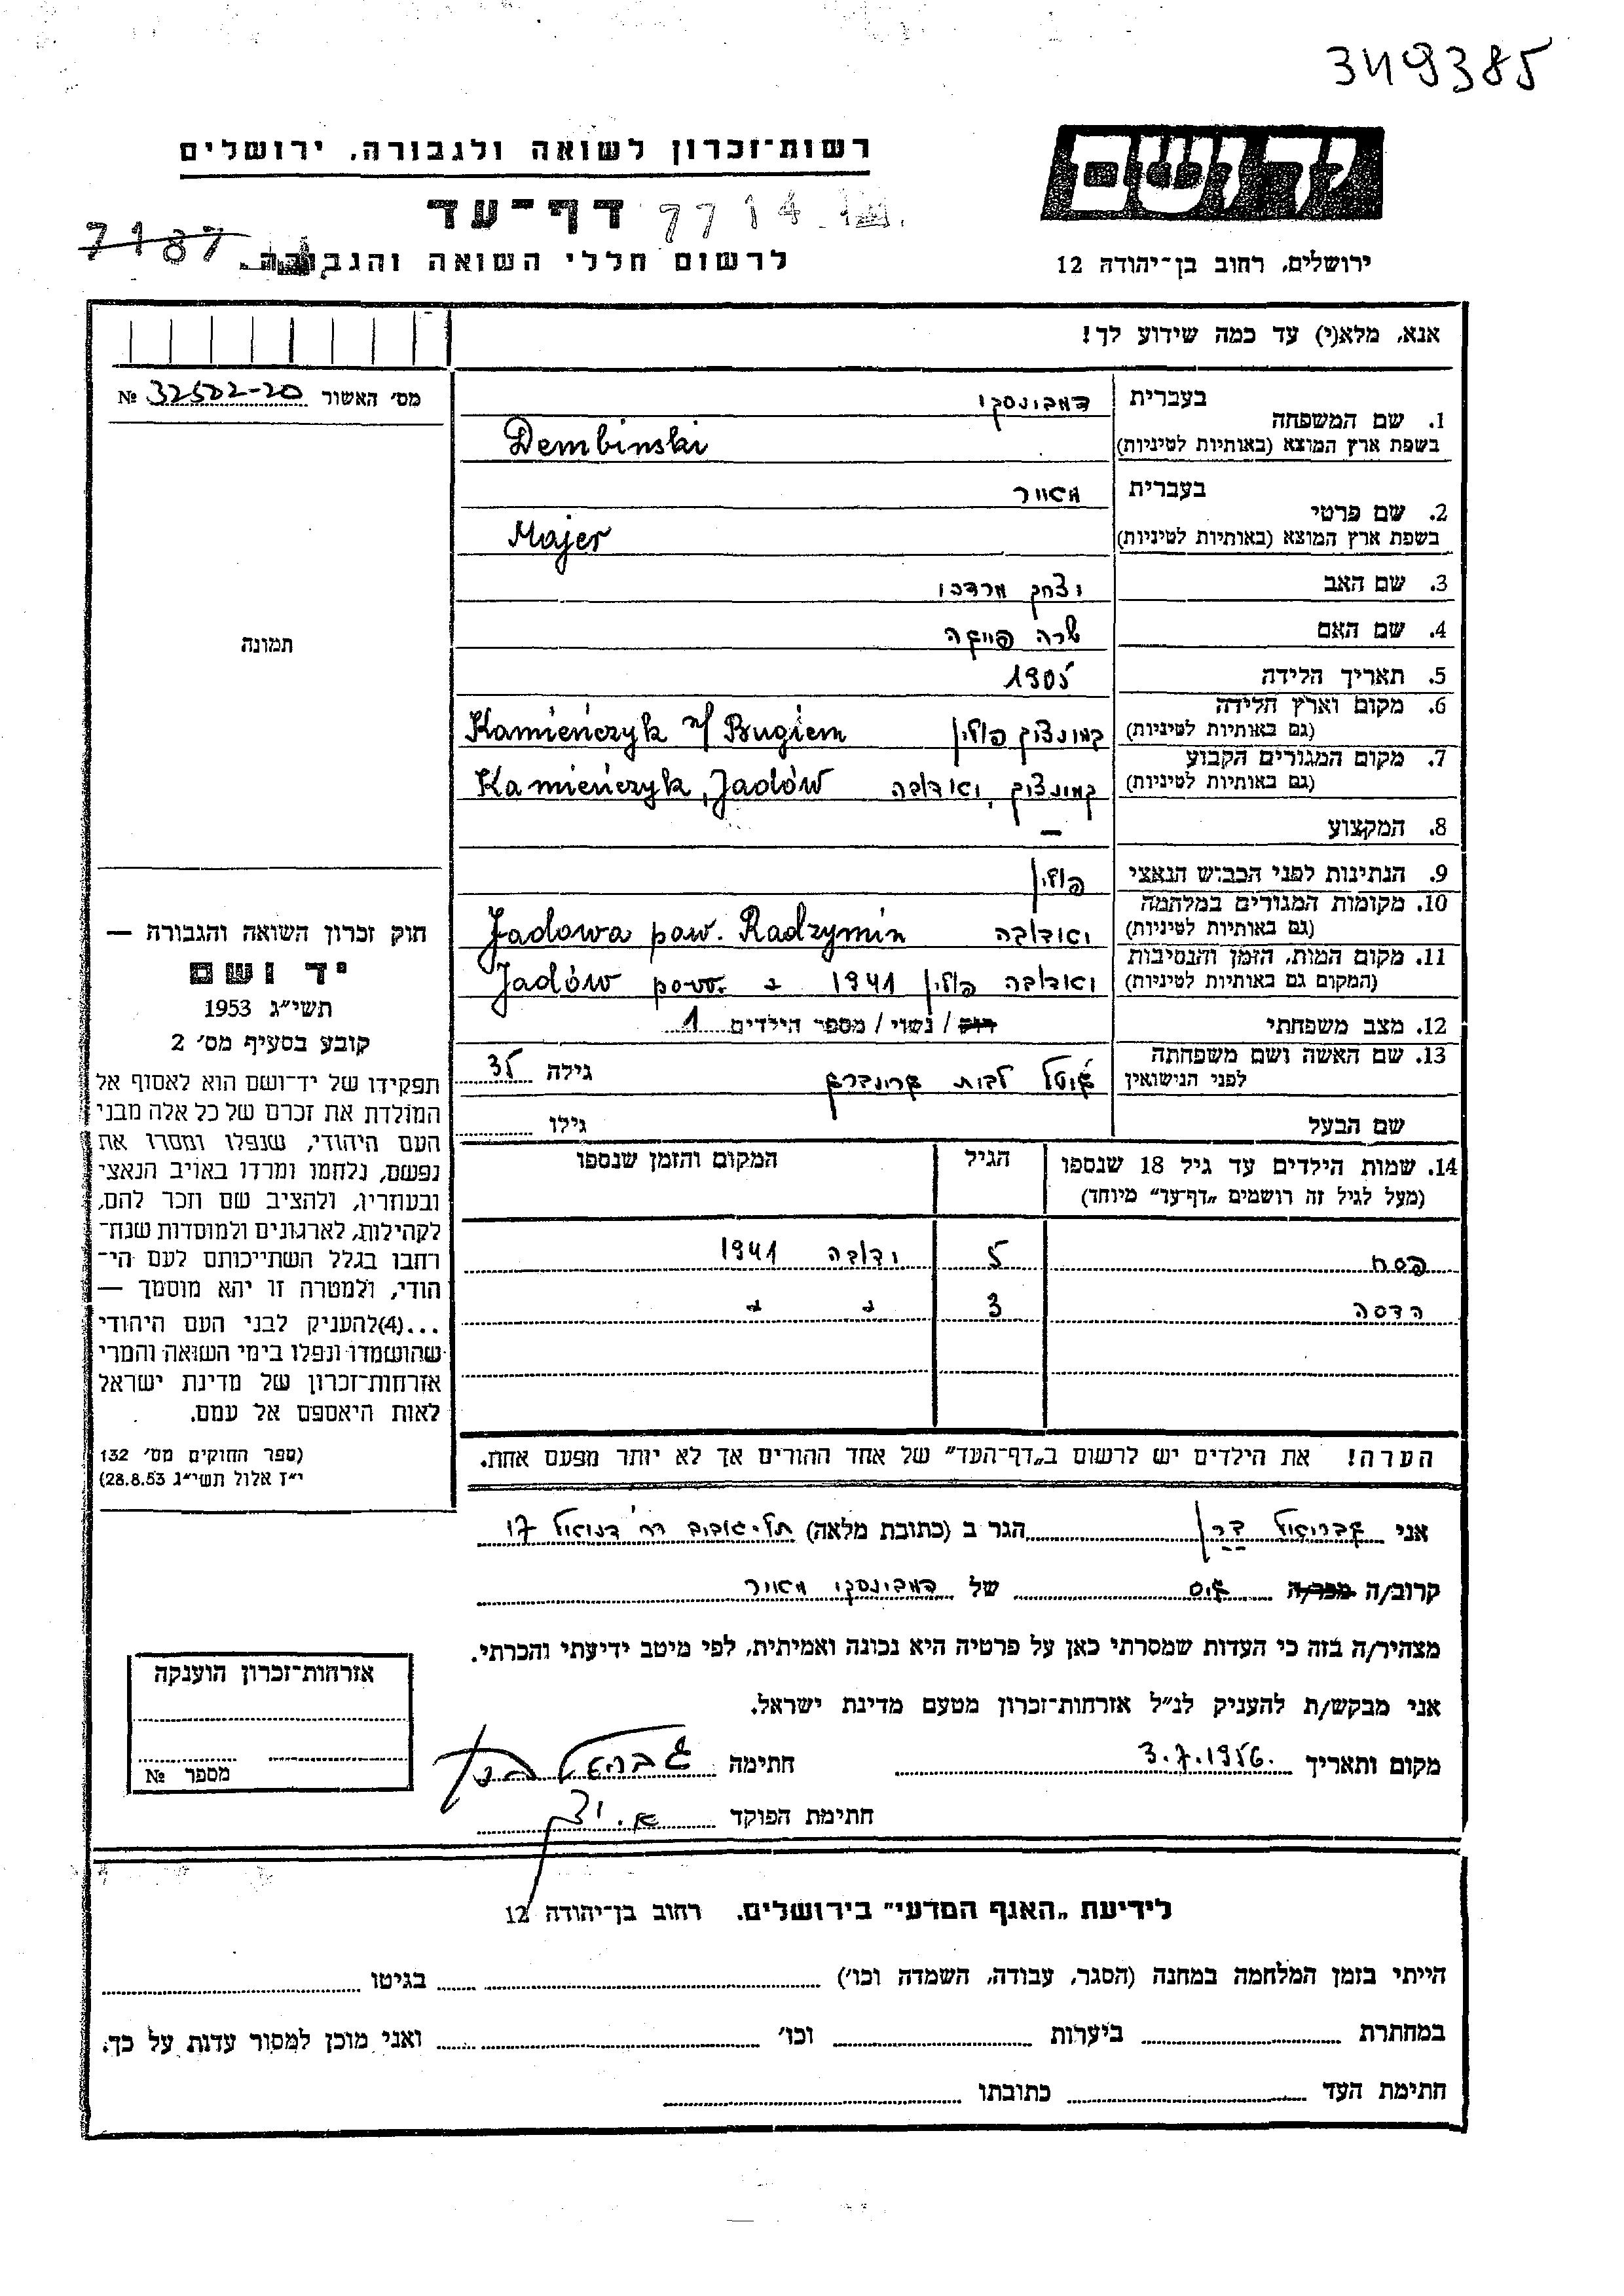 349385
רשות־זכרון לשואה ולגבורה, ירושלים
יד ושם
דף־עד 7714
7187
לרשום חללי השואה והגבורה.
ירושלים, רחוב בן־יהודה 12
אנא, מלא(י) עד כמה שידוע לך!
מס׳ האשור 32502-20 №
1. שם המשפחה
בעברית דמבינסקי
בשפת ארץ המוצא (באותיות לטיניות) Dembinski
2. שם פרטי
בעברית מאיר
בשפת ארץ המוצא (באותיות לטיניות) Majer
3. שם האב יצחק מרדכי
4. שם האם שרה פייגה
תמונה
5. תאריך הלידה 1905
6. מקום וארץ הלידה
(גם באותיות לטיניות) קמינצוק פולין Kamieńczyk n/ Bugiem
7. מקום המגורים הקבוע
(גם באותיות לטיניות) קמינצוק, יאדובה Kamieńczyk, Jadów
8. המקצוע —
9. הנתינות לפני הכבוש הנאצי פולין
10. מקומות המגורים במלחמה
(גם באותיות לטיניות) יאדובה Jadowa pow. Radzymin
11. מקום המות, הזמן והנסיבות
(המקום גם באותיות לטיניות) יאדובה פולין 1941 Jadów
12. מצב משפחתי רוק / נשוי / מספר הילדים 1
13. שם האשה ושם משפחתה
לפני הנישואין לבית גילה 35
שם הבעל גילו
14. שמות הילדים עד גיל 18 שנספו
(מעל לגיל זה רושמים „דף־עד״ מיוחד)
הגיל
המקום והזמן שנספו
פסח 5 ידובה 1941
הדסה 3 " "
הערה! את הילדים יש לרשום ב„דף־העד״ של אחד ההורים אך לא יותר מפעם אחת.
חוק זכרון השואה והגבורה —
יד ושם
תשי״ג 1953
קובע בסעיף מס׳ 2
תפקידו של יד־ושם הוא לאסוף אל
המולדת את זכרם של כל אלה מבני
העם היהודי, שנפלו ומסרו את
נפשם, נלחמו ומרדו באויב הנאצי
ובעוזריו, ולהציב שם וזכר להם,
לקהילות, לארגונים ולמוסדות שנח־
רבו בגלל השתייכותם לעם הי־
הודי, ולמטרה זו יהא מוסמך —
...(4) להעניק לבני העם היהודי
שהושמדו ונפלו בימי השואה והמרי
אזרחות־זכרון של מדינת ישראל
לאות היאספם אל עמם.
(ספר החוקים מס׳ 132
י״ז אלול תשי״ג 28.8.53)
אני גבריאל הגר ב (כתובת מלאה) תל־אביב רח׳ 17
קרוב/ה מכר/ה גיס של דמבינסקי מאיר
מצהיר/ה בזה כי העדות שמסרתי כאן על פרטיה היא נכונה ואמיתית, לפי מיטב ידיעתי והכרתי.
אני מבקש/ת להעניק לנ״ל אזרחות־זכרון מטעם מדינת ישראל.
מקום ותאריך 3.7.1956. חתימה גבריאל
חתימת הפוקד
אזרחות־זכרון הוענקה
מספר №
לידיעת „האגף המדעי״ בירושלים. רחוב בן־יהודה 12
הייתי בזמן המלחמה במחנה (הסגר, עבודה, השמדה וכו׳) בגיטו
במחתרת ביערות וכו׳ ואני מוכן למסור עדות על כך.
חתימת העד כתובתו